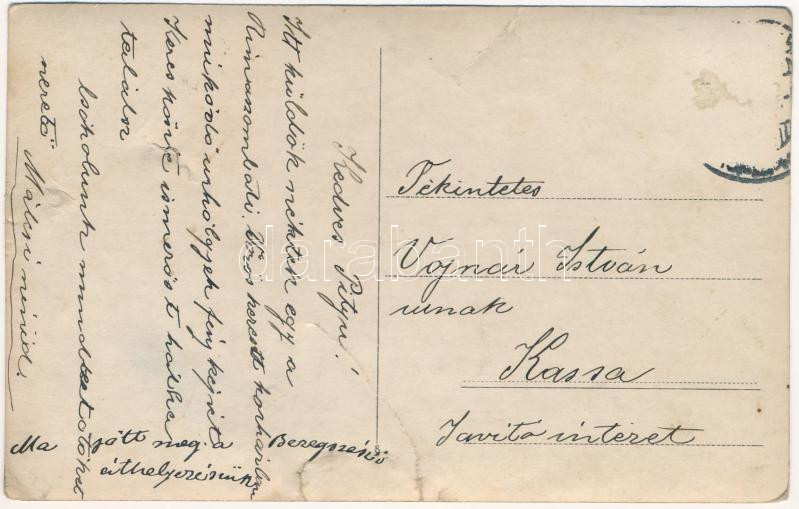 Kedves Pityu!
Itt küldök nektek egy a
Rimaszombati Vörös kereszt korházban
müködö urhölgyek fényképét
Keres könje ismeröst
találsz
Csokolunk mindketötöket
szeretö
Málcsi nénid.
Ma jött meg a Beregszászi
áthelyezésünk
Tekintetes
Vojnár István
urnak
Kassa
Javitó intézet
darabanth